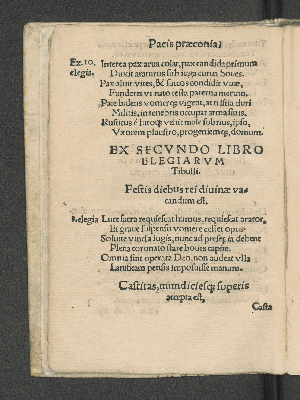 Pacis præconia.
Ex.10. Interea pax arua colat, pax candida primum
elegia. Duxit araturus sub iuga curua boues.
Pax aluit vites, & succos condidit vuæ,
Funderet vt nato testa paterna merum.
Pace bidens vomerq; vigent, at tristia duri
Militis, in tenebris occupat arma situs.
Rusticus è lucoq; vehit male sobrius, ipse,
Vxorem plaustro, progeniemq; domum.
EX SECVNDO LIBRO
ELEGIARVM
Tibulli.
Festis diebus rei diuinæ va-
candum est.
1.elegia Luce sacra requiescat humus, requiescat arator,
Et graue suspenso vomere cesset opus.
Soluite vincla iugis, nunc ad præsepia debent
Plena coronato stare boues capite.
Omnia sint operata Deo, non audeat vlla
Lanificam pensis imposuisse manum.
Castitas, mundiciesq; superis
accepta est.
Casta